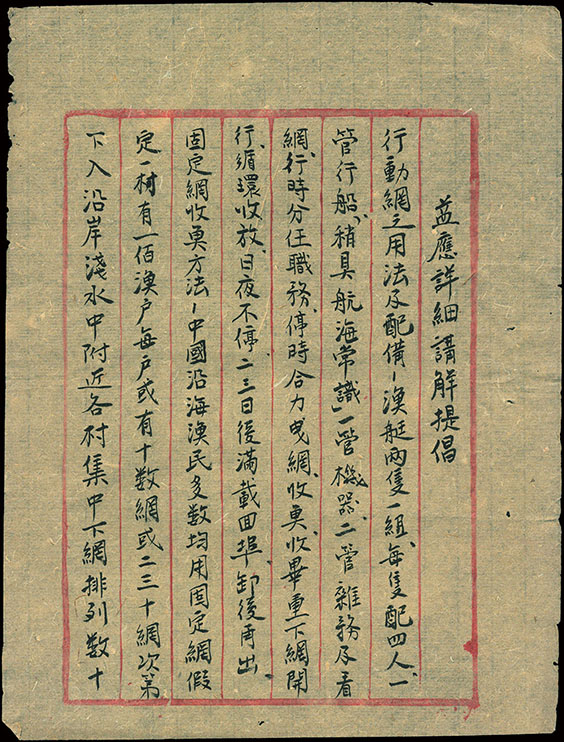 並應詳細講解提倡
行動網之用法及配備－漁艇兩隻一組、每隻配四人、一
管行船、「稍具航海常識」一管機器、二管雜務及看
網、行時分任職務、停時合力曳網、收魚、收畢重下網開
行、循環收放、日夜不停、二三日後滿載回埠、卸後再出、
固定網收魚方法－中國沿海漁民多数均用固定網假
定一村有一佰漁户每户或有十数網或二三十網次第
下入沿岸淺水中附近各村集中下網排列数十